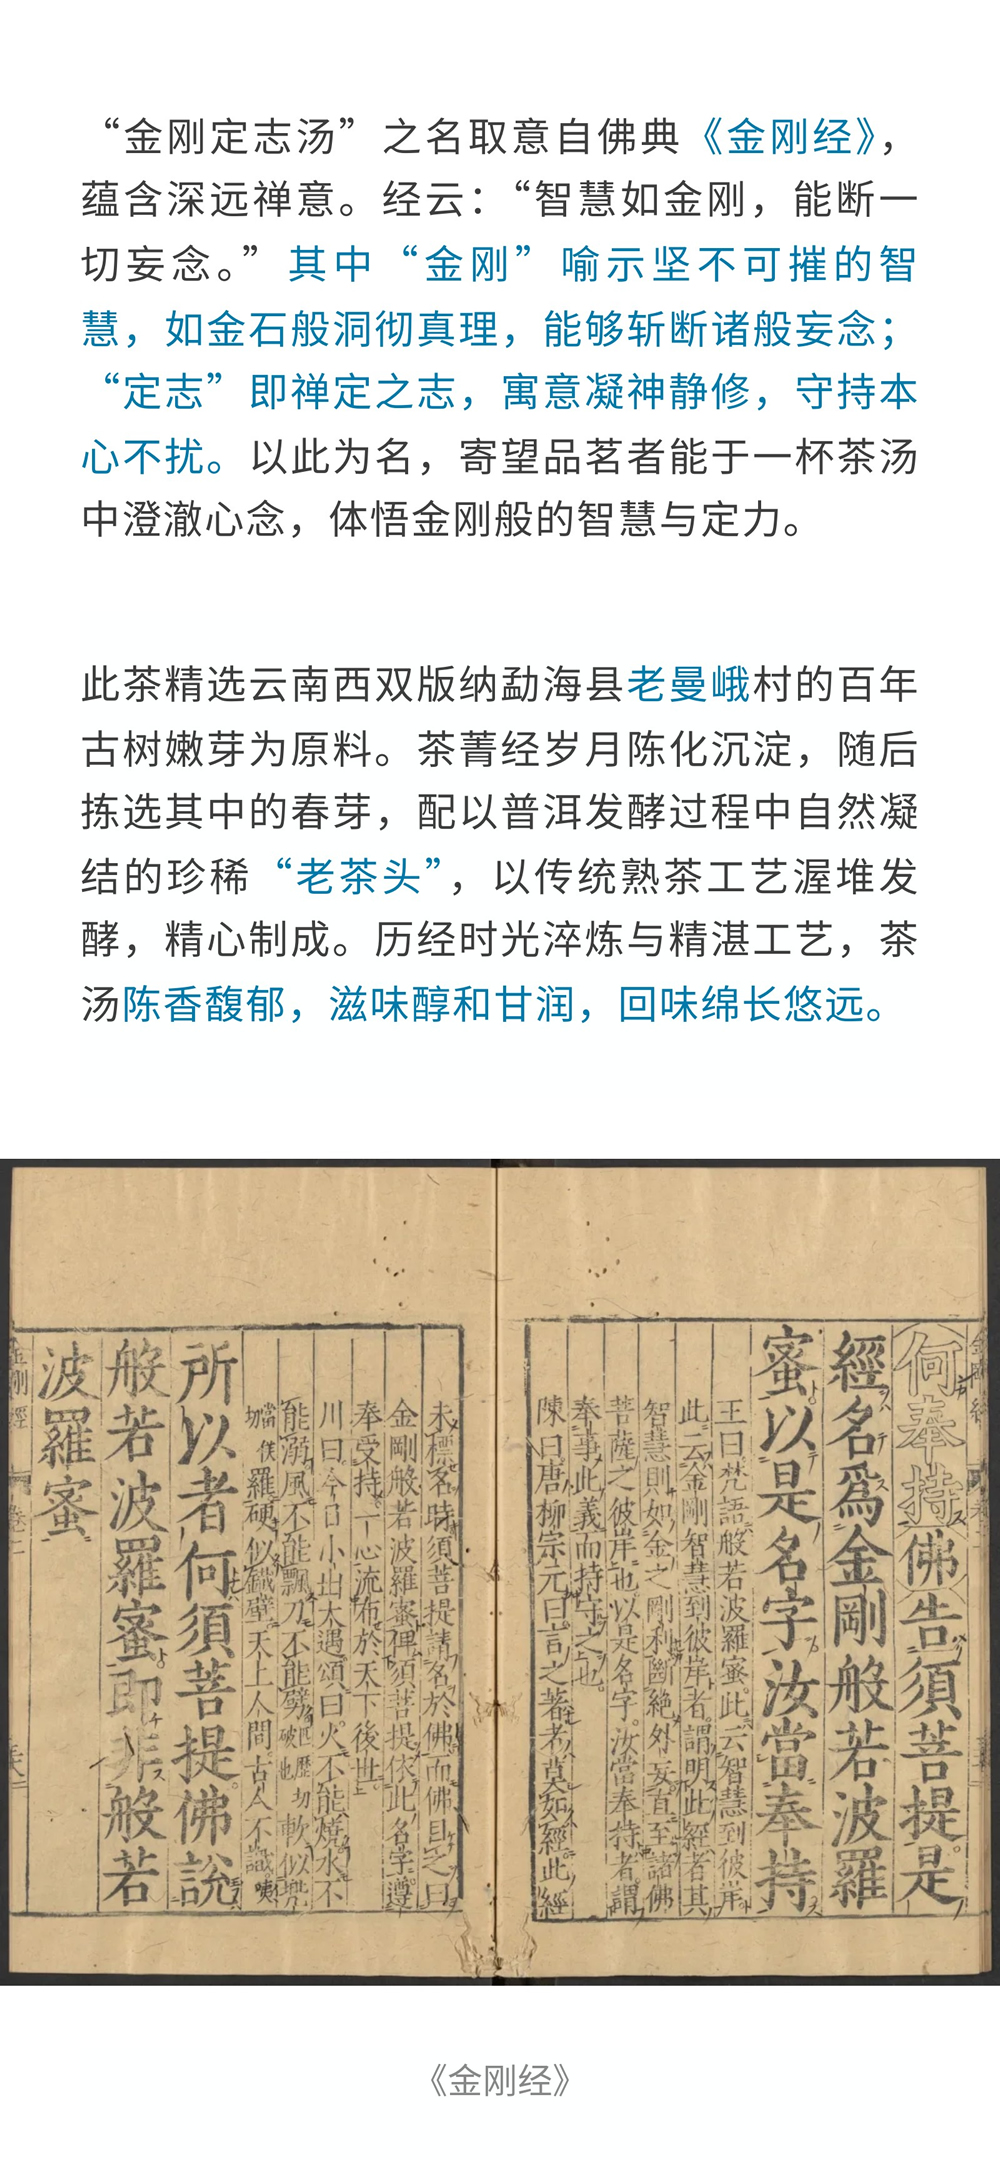 “金刚定志汤”之名取意自佛典《金刚经》，
蕴含深远禅意。经云：“智慧如金刚，能断一
切妄念。”其中“金刚”喻示坚不可摧的智
慧，如金石般洞彻真理，能够斩断诸般妄念；
“定志”即禅定之志，寓意凝神静修，守持本
心不扰。以此为名，寄望品茗者能于一杯茶汤
中澄澈心念，体悟金刚般的智慧与定力。
此茶精选云南西双版纳勐海县老曼峨村的百年
古树嫩芽为原料。茶菁经岁月陈化沉淀，随后
拣选其中的春芽，配以普洱发酵过程中自然凝
结的珍稀“老茶头”，以传统熟茶工艺渥堆发
酵，精心制成。历经时光淬炼与精湛工艺，茶
汤陈香馥郁，滋味醇和甘润，回味绵长悠远。
何奉持佛告須菩提是
經名爲金剛般若波羅
蜜以是名字汝當奉持
王曰梵語般若波羅蜜此云智慧到彼岸
此云金剛智慧到彼岸者謂明此經者其
智慧則如金之剛利斷絕外妄直至諸佛
菩薩之彼岸也以是名字汝當奉持者謂
奉事此義而持守之也
陳曰唐柳宗元曰言之著者莫如經此經
未標名時須菩提請名於佛而佛目之曰
金剛般若波羅蜜俾須菩提依此名字遵
奉受持一心流布於天下後世
川曰今日小出大遇頌曰火不能燒水不
能溺風不能飄刀不能劈軟似兜
羅硬似鐵壁天上人間古今不識咦
所以者何須菩提佛説
般若波羅蜜即非般若
波羅蜜
《金刚经》